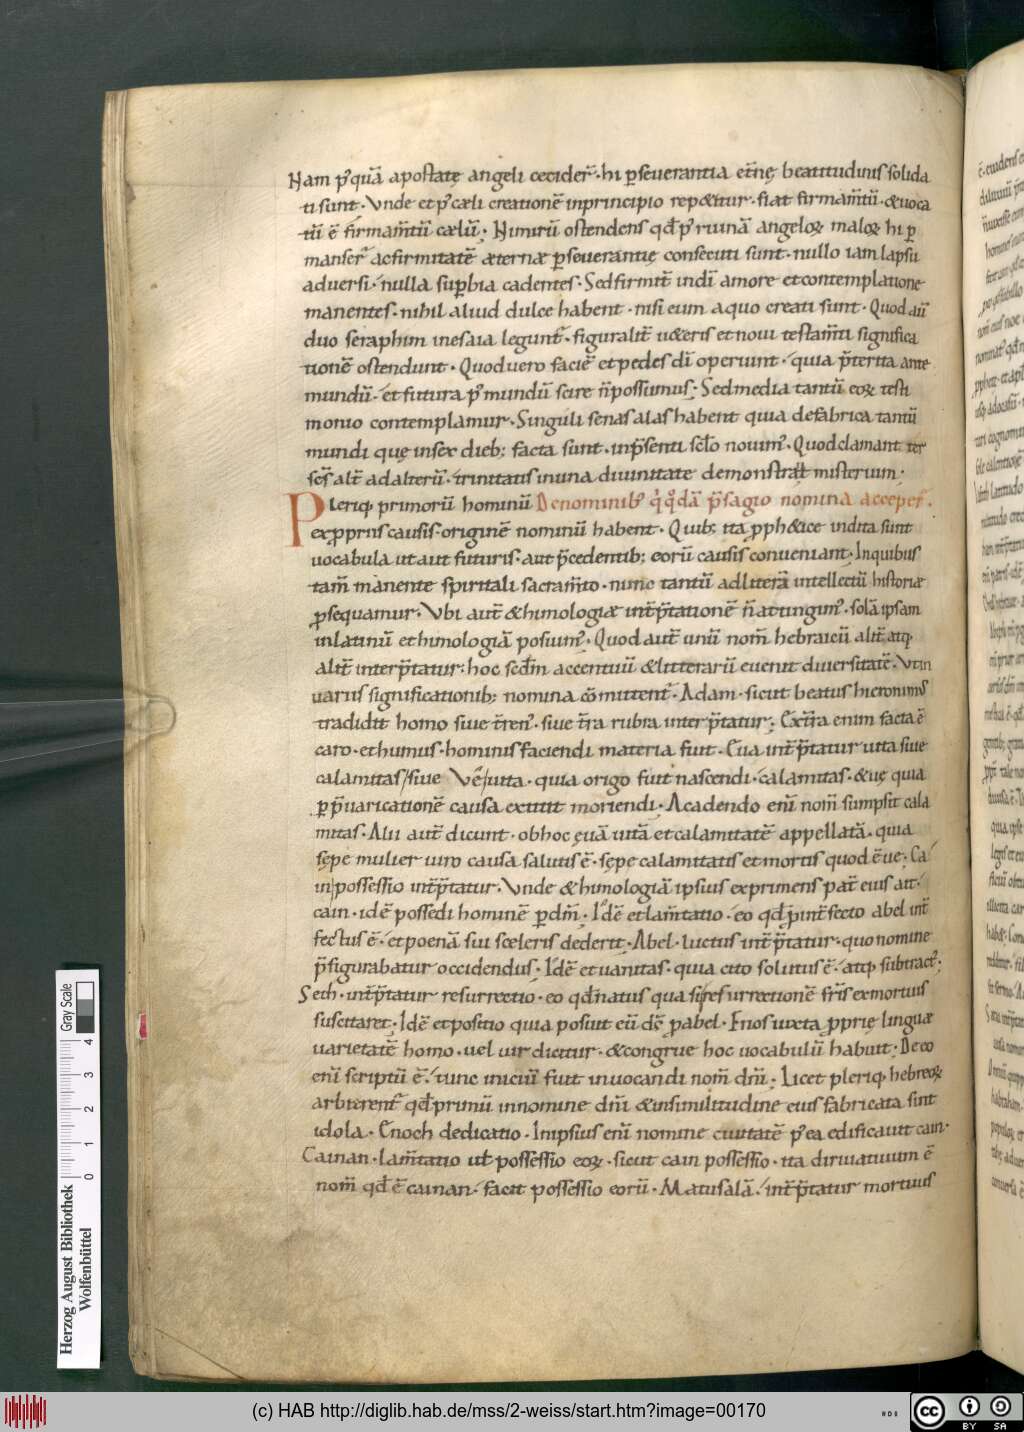 Nam p̾quā apostatę angeli cecider̄ · hi ꝑseuerantia et̄nę beatitudinis solida
ti sunt · Vnde et p̾ cæli creationē in principio rep&itur · fiat firmam̄tū · & uoca
tū ē firmam̄tū cælū ; Nimirū ostendens qđ p̾ ruinā angeloꝝ maloꝝ hi ꝑ
manser̄ ac firmitatē æternæ ꝑseuerantię consecuti sunt · nullo iam lapsu
aduersi · nulla suꝑbia cadentes · Sed firmit̄ in dī amore et contemplatione
manentes · nihil aliud dulce habent · nisi eum a quo creati sunt · Quod aū
duo seraphim in esaia legunt̾ · figuralit̄ u&eris et noui testam̄ti significa
tionē ostendunt · Quod uero faciē et pedes dī operiunt · quia p̄terita ante
mundū · et futura p̾ mundū scire n̄ possumus ; Sed media tantū eoꝝ testi
monio contemplamur · Singuli senas alas habent quia de fabrica tantū
mundi quę in sex dieb; facta sunt · in p̄senti sc̄lo nouim̾ · Quod clamant ter
sc̄s alt̄ ad alterū · trinitatis in una diuinitate demonstrat misterium ·
Pleriq; primorū hominū De nominib; q̇ q̇dā p̄sagio nomina acceper̄ ·
ex ꝓpriis causis originē nominū habent · Quib; ita ꝓph&ice indita sunt
uocabula ut aut futuris · aut p̄cedentib; eorū causis conueniant · In quibus
tam̄ manente spiritali sacram̄to · nunc tantū ad literā intellectū historiæ
ꝑsequamur · Vbi aut̄ &himologiæ int̄p̄tationē n̄ attingim̾ · solā ipsam
in latinū ethimologiā posuim̾ · Quod aut̄ unū nom̄ hebraicū alit̄ atq;
alit̄ interp̄tatur · hoc sec̄dm accentuū & litterarū euenit diuersitatē · Vt in
uariis significationib; nomina cōmittent̾ · Adam · sicut beatus hieronimus
tradidit homo siue t̄ren̾ · siue t̄ra rubra interp̄tatur ; Ex t̄ra enim facta ē
caro · et humus · hominis faciendi materia fuit · Eua int̄p̄tatur uita siue
calamitas / siue Vę / uita · quia origo fuit nascendi · calamitas · & uę quia
ꝑ p̄uaricationē causa extitit moriendi · A cadendo enī nom̄ sumpsit cala
mitas · Alii aut̄ dicunt · ob hoc ęuā uitā et calamitatē appellatā · quia
sępe mulier uiro causa salutis ē · sępe calamitatis et mortis quod ē ue · Ca
in / possessio int̄p̄tatur · Vnde & himologiā ipsius exprimens pat̄ eius ait ·
cain · idē possedi hominē ꝑ dm̄ · Idē et lam̄tatio · eo qđ p̄ int̄fecto abel int̄
fectus ē · et poenā sui sceleris dederit · Abel · luctus int̄p̄tatur · quo nomine
p̄figurabatur occidendus · Idē et uanitas · quia cito solutus ē · atq; subtract̾ ;
Seth · int̄p̄tatur resurrectio · eo qđ natus qua si / resurrectionē fr̄is ex mortuis
suscitaret · Idē et positio quia posuit eū dę̄ ꝓ abel · Enos iuxta ꝓprię linguæ
uarietatē homo · uel uir dicitur · & congrue hoc uocabulū habuit · De eo
enī scriptū ē · tunc iniciū fuit inuocandi nom̄ dnī ; Licet pleriq; hebreoꝝ
arbitrent̾ qđ primū in nomine dnī & in similitudine eius fabricata sint
idola · Enoch dedicatio · In ipsius enī nomine ciuitatē p̾ ea edificauit cain ·
Cainan · lam̄tatio uł possessio eoꝝ · sicut cain possessio · ita diriuatiuum ē
nom̄ qđ ē cainan · facit possessio eorū · Matusalā · int̄p̄tatur mortuus
Herzog August Bibliothek
Wolfenbüttel
0 1 2 3 4
Gray Scale
(c) HAB http://diglib.hab.de/mss/2-weiss/start.htm?image=00170
cc BY SA